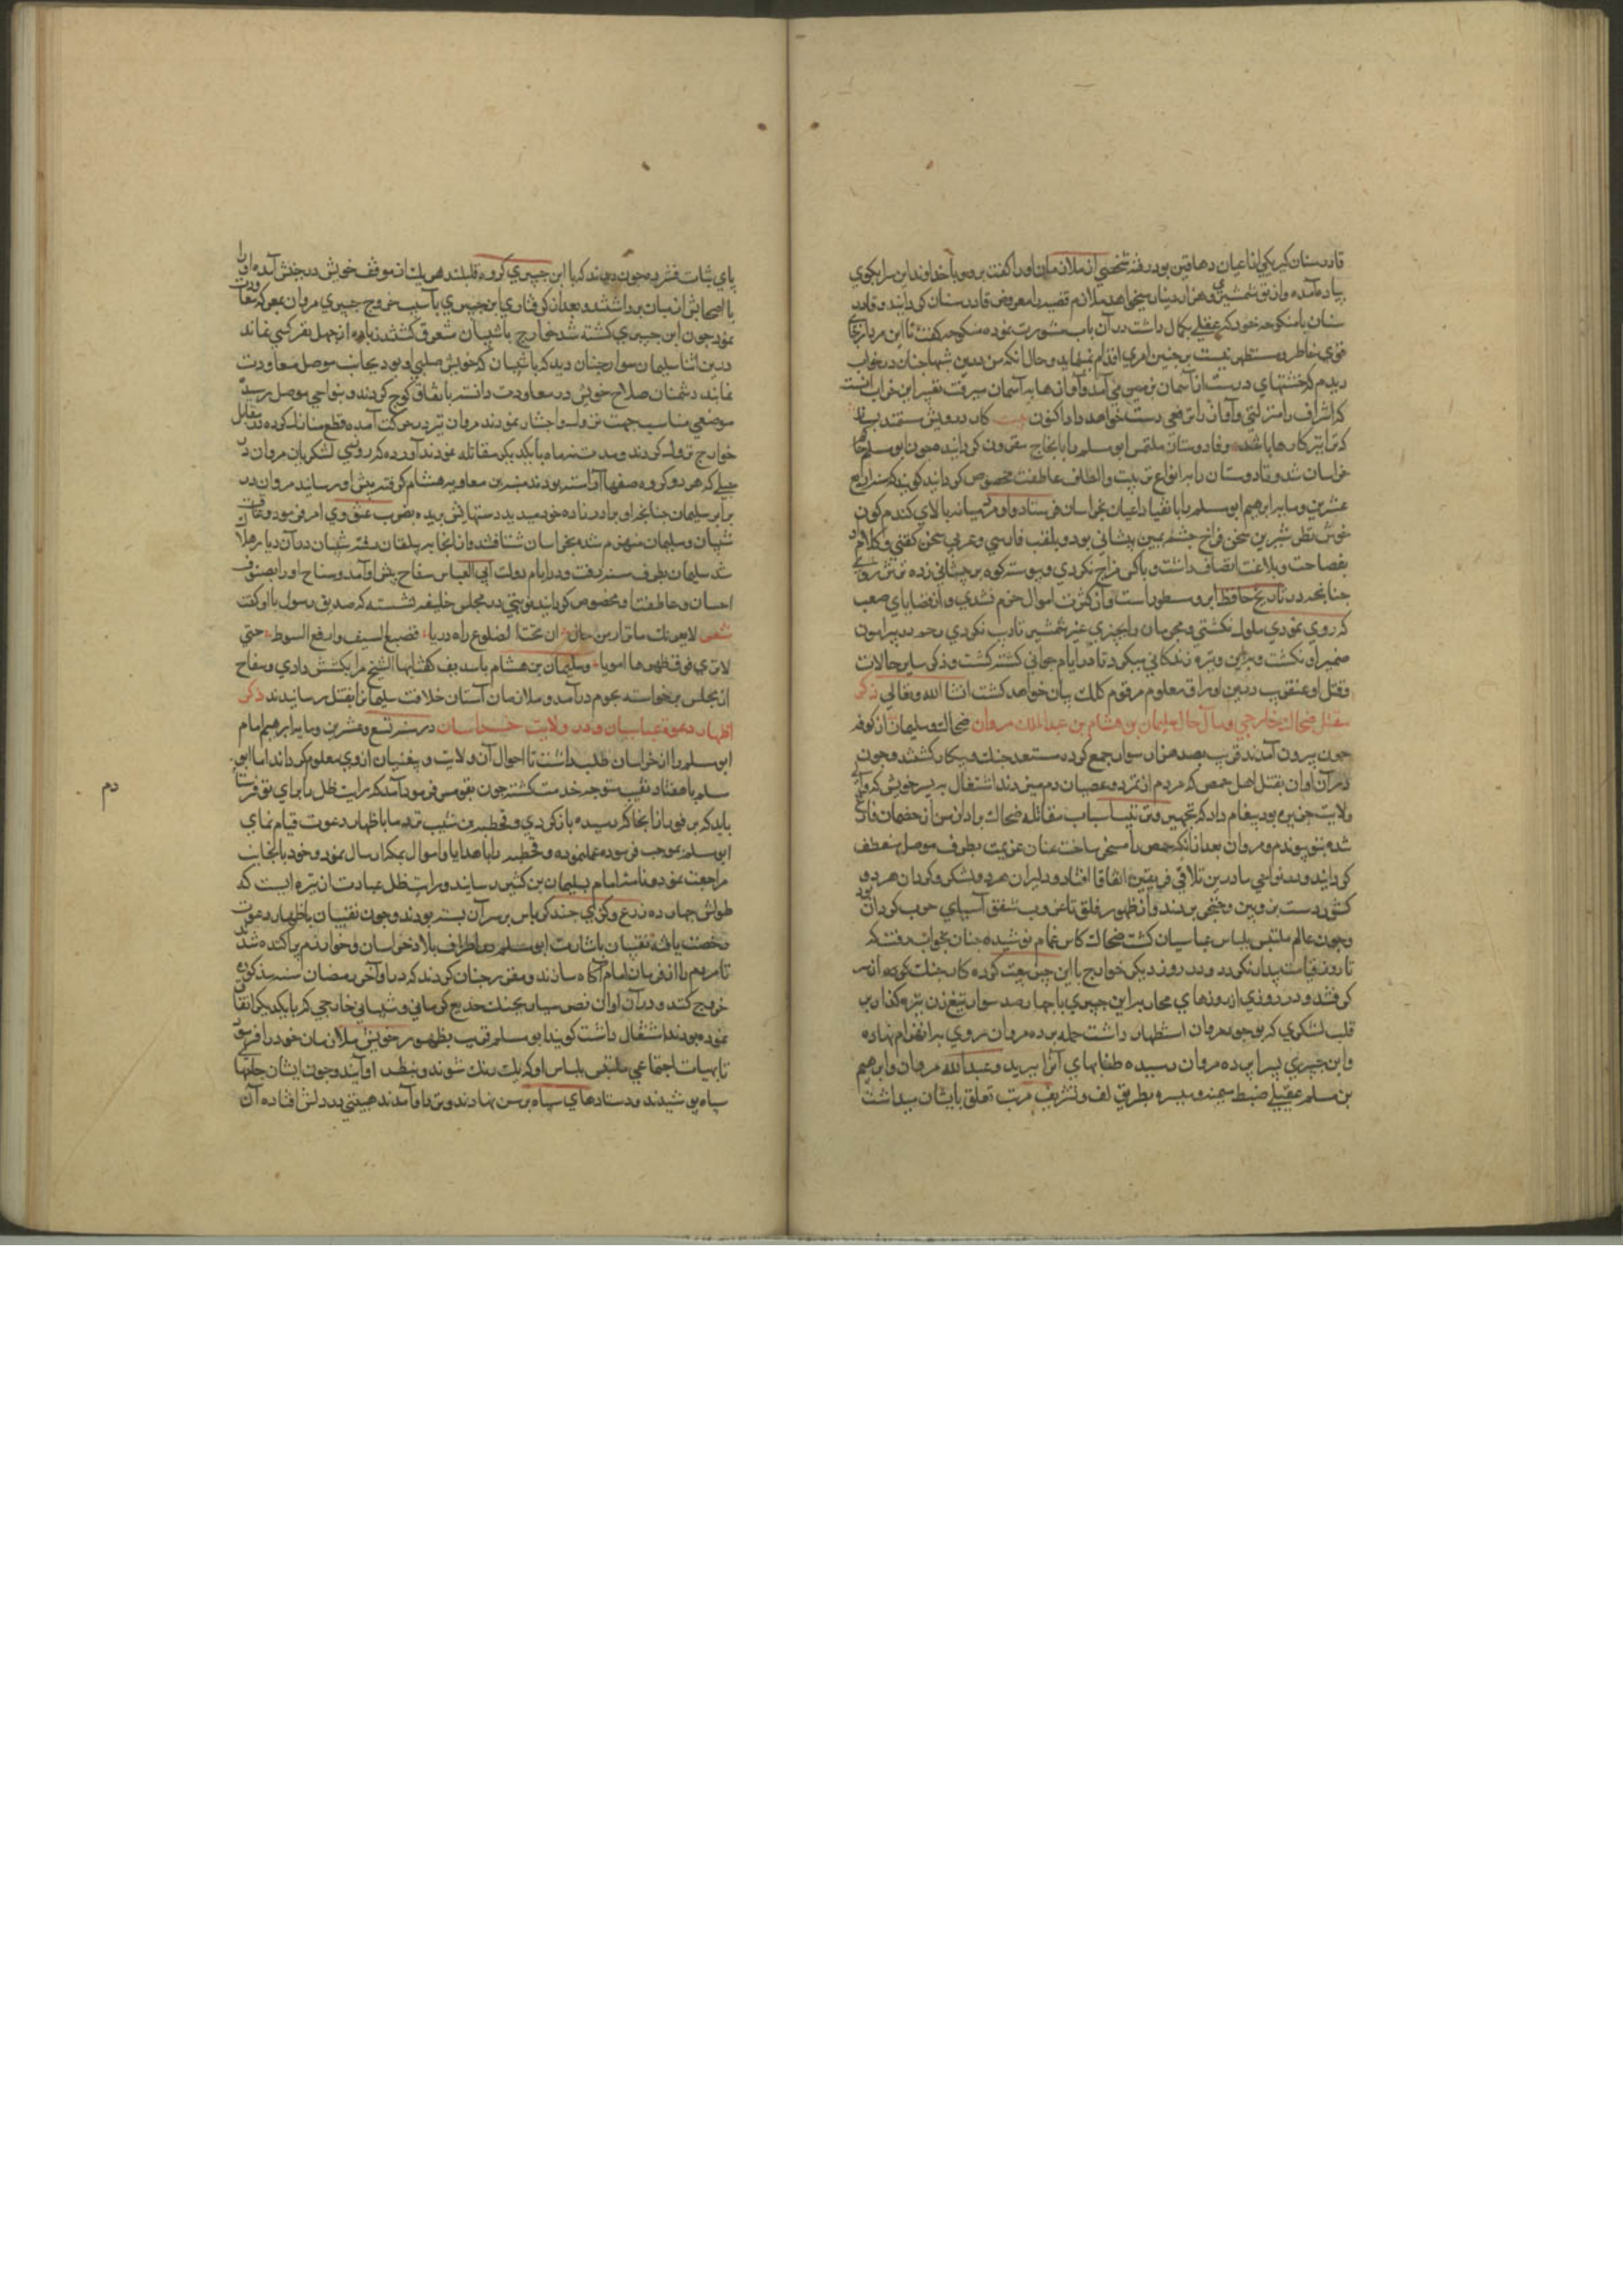 قادوسنان که یکی از اعیان دهاقین بود رفته شخصی از ملازمان او را گفت برو و با خداوند این سرا بگوی
پیاده آمده و از تو شمشیری و هزار دینار میخواهد ملازم قضیه را معروض قادوسنان گردانید و قادو
سنان با منکوحه خود که عقلی بکمال داشت در آن باب مشورت نموده منکوحه گفت تا این مرد بجای
قوی خاطر و مستظهر نیست بر چنین امری اقدام نمینماید و حال آنکه من درین شبها چنان در خواب
دیدم که خشتهای درست از آسمان بر زمین می آمد و آوازها به آسمان میرفت تعبیر این خواب آنست
که اشراف را منزلتی و آوازه را ترفعی دست خواهد داد اکنون بیت کار درویش مستمند برآر
که ترا نیز کارها باشد و قادوسنان ملتمس ابو مسلم را بانجاح مقرون گردانید و چون ابو مسلم
خراسان شد و قادوسنان را بانواع تربیت و الطاف عاطفت مخصوص گردانید گویند که در سنه اربع
عشرین و مایه ابرهیم ابو مسلم را با نقبا و اعیان بخراسان فرستاد و او مردی میانه بالای گندم گون
خوش نظر شیرین سخن فراخ چشم پهن پیشانی بود و بلغت فارسی و عربی سخن گفتی و کلام
بفصاحت و بلاغت اتصاف داشت و با کس مزاح نکردی و پیوسته گره بر پیشانی زده ترش روی
چنانچه در تاریخ حافظ ابرو مسطور است و از کثرت اموال خرم نشدی و از قضایای صعب
که روی نمودی ملول نگشتی و مجرمان را بچیزی غیر شمشیر تادیب نکردی رحم در پیرامون
ضمیر او نگشت و برین وتیره زندگانی میکرد تا در ایام جوانی کشته گشت و ذکر سایر حالات
و قتل او عنقریب درین اوراق معلوم مرقوم کلک بیان خواهد گشت انشا الله تعالی ذکر
مقتل ضحاک خارجی و مآل حال سلیمان بن هشام بن عبدالملک مروان ضحاک و سلیمان از کوفه
چون بیرون آمدند قریب بصد هزار سوار جمع کرده مستعد جنگ و پیکار گشتند و چون
در آن اوان بقتل اهل حمص که مردم از تمرد و عصیان دم میزدند اشتغال به پسر خویش که والی
ولایت جزیره بود پیغام داد که تجهیز و ترتیب اسباب مقاتله ضحاک پردازد من از خصمان فارغ
شده بتو پیوندم و مروان بعد از آنکه حمص را مسخر ساخت عنان عزیمت بطرف موصل منعطف
گردانید و در نواحی ماردین تلاقی فریقین اتفاق افتاد و دلیران هر دو لشکر و گردان هر دو
کشور دست به زوبین و خنجر بردند و از ظهور فلق تا غروب شفق آسیای حرب گردان بود
و چون عالم ملتبس بلباس عباسیان گشت ضحاک کاس حمام نوشیده چنان بخواب رفت که
تا روز قیامت بیدار نگردد و در روز دیگر خوارج با ابن جبیری بیعت کرده کار جنگ از سر
گرفتند و در روزی از روزهای محاربه ابن جبیری با چهارصد سوار تیغ زن نیزه گذار بر
قلب لشکری که بوجود مروان استظهار داشت حمله برده مروان روی به انهزام نهاده
و ابن جبیری بسراپرده مروان رسیده طنابهای آنرا ببرید و عبدالله مروان و ابرهیم
بن مسلم عقیلی ضبط میمنه و میسره بطریق لف و نشر مرتب تعلق بایشان میداشت
پای ثبات فشرده چون دیدند که با ابن جبیری گروه قلیلند هر یک از موقف خویش در جنبش آمده او را
با اصحابش از میان برداشتند و بعد از گرفتاری ابن جبیری بآسیب خروج جبیری مروان بمعرکه معاودت
نمود چون ابن جبیری کشته شد خوارج با شیبان متفق گشتند زیاده از چهل نفر کسی نماند
درین اثنا سلیمان سوار چنان دید که با شیبان که خویش صلبی او بود بجانب موصل معاودت
نمایند دشمنان صلاح خویش در معاودت دانسته باتفاق کوچ کردند و بنواحی موصل رسیده
موضعی مناسب جهت نزول اختیار نمودند مروان نیز در حرکت آمده و قطع منازل کرده در مقابل
خوارج نزول کردند و مدت نه ماه با یکدیگر مقاتله نمودند آورده اند که روزی لشکریان مروان در
محلی که هر دو گروه صفها آراسته بودند پسر بن معاویه هشام گرفته پیش او رسانید مروان در
برابر سلیمان چنانچه او برادرزاده خود میدید دستهاش بریده بضرب عنق وی امر فرمود و عاقبت
شیبان و سلیمان منهزم شده بخراسان شتافتند و از آنجا به بلقان رفته شیبان در آن دیار هلاک
شد سلیمان بطرف سند رفت و در ایام دولت ابی العباس سفاح پیش او آمد و سفاح او را بصنوف
احسان و عاطفت مخصوص گردانید نوبتی در مجلس خلیفه نشسته که صدیق رسول با او گفت
شعر لا یغرنک ما تری من رجال ان تحت الضلوع داء دویا فضع السیف وارفع السوط حتی
لا تری فوق ظهرها امویا و سلیمان بن هشام با سدیف گفت ایها الشیخ مرا بکشتن دادی و سفاح
از مجلس برخاسته بحرم درآمد و ملازمان آستان خلافت سلیمان را بقتل رسانیدند ذکر
اظهار دعوة عباسیان و در ولایت خراسان در سنه تسع و عشرین و مایه ابرهیم امام
ابو مسلم را از خراسان طلب داشت تا احوال آن ولایت و پیغنیان از وی معلوم گرداند اما ابو
مسلم با هفتاد نقیب متوجه خدمت گشته چون بقومس فرمود آمد که رایت ظل را برای تو فرستاده
باید که بر فور از آنجا که رسیده باز گردی و قحطبه بن شبیب نزد ما باظهار دعوت قیام نمای
ابو مسلم بموجب فرموده عمل نموده و قحطبه را با هدایا و اموال بمکه ارسال نمود و خود بآنجانب
مراجعت نمود و نامه امام بسلیمان بن کثیر رسانید و رایت ظل عبارت از نیزه ایست که
طولش چهارده ذرع و کزی چند کرباس بر سر آن بسته بودند و چون نقیبان باظهار دعوت
رخصت یافته نقیبان باشارت ابو مسلم در اطراف بلاد خراسان و خوارزم پراکنده شدند
تا مردم را از فرمان امام آگاه سازند و مقرر چنان کردند که در اواخر رمضان سنه مذکوره
خروج کنند و در آن اوان نصر سیار بجنگ خدیع کرمانی و شیبانی خارجی که با یکدیگر اتفاق
نموده بودند اشتغال داشت گویند ابو مسلم قریب بظهور خویش ملازمان خود را فرمود
تا بهیات اجتماعی ملتبس بلباس او که یک رنگ شوند و بنظر او آیند و چون ایشان جامها
سیاه پوشیدند و دستارهای سیاه بر سر نهادند و نزد او آمدند هیبتی در دلش افتاده آن
دم